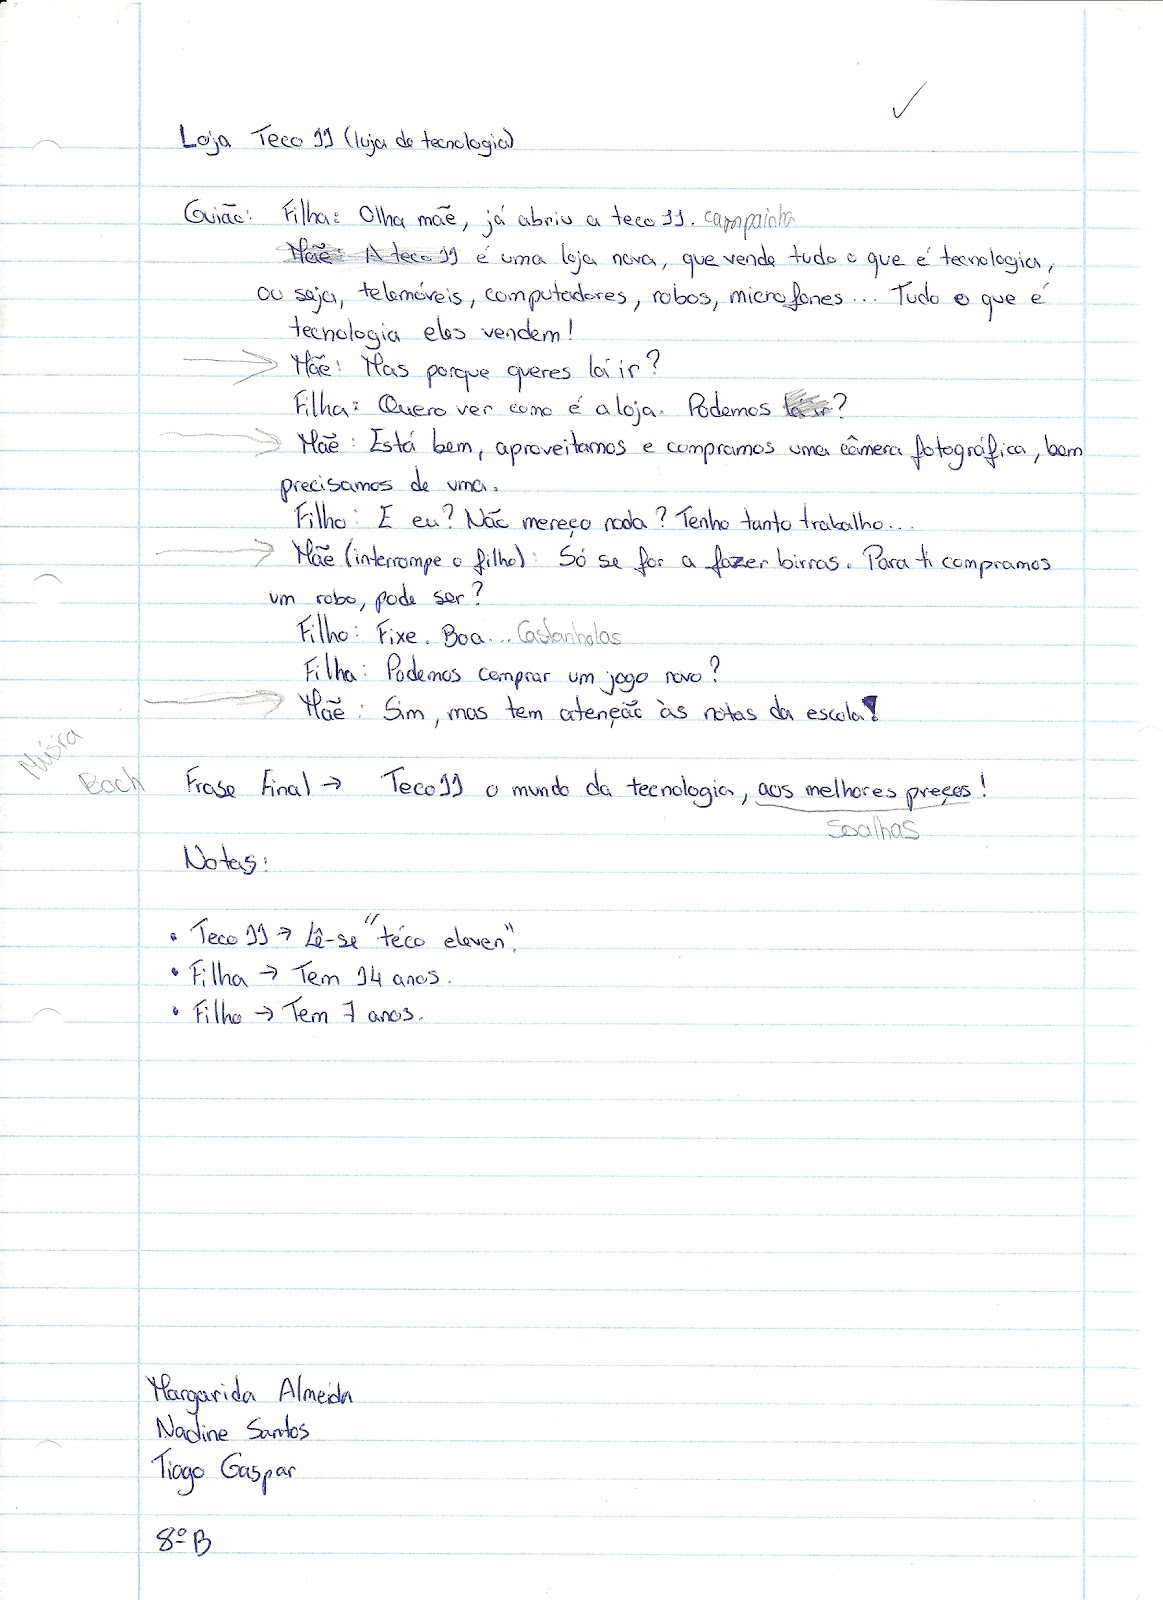 Loja Teco 11 (loja de tecnologia)
Guião: Filha: Olha mãe, já abriu a teco 11. campainha
Mãe: A teco 11 é uma loja nova, que vende tudo o que é tecnologia,
ou seja, telemóveis, computadores, robos, microfones... Tudo o que é
tecnologia eles vendem!
Mãe: Mas porque queres lá ir?
Filha: Quero ver como é a loja. Podemos lá ir?
Mãe: Está bem, aproveitamos e compramos uma câmera fotográfica, bem
precisamos de uma.
Filho: E eu? Não mereço nada? Tenho tanto trabalho...
Mãe (interrompe o filho): Só se for a fazer birras. Para ti compramos
um robo, pode ser?
Filho: Fixe. Boa... Castanholas
Filha: Podemos comprar um jogo novo?
Mãe: Sim, mas tem atenção às notas da escola!
Música
Bach Frase Final → Teco 11 o mundo da tecnologia, aos melhores preços!
Soalhas
Notas:
• Teco 11 → Lê-se "téco eleven".
• Filha → Tem 14 anos.
• Filho → Tem 7 anos.
Margarida Almeida
Nadine Santos
Tiago Gaspar
8ºB